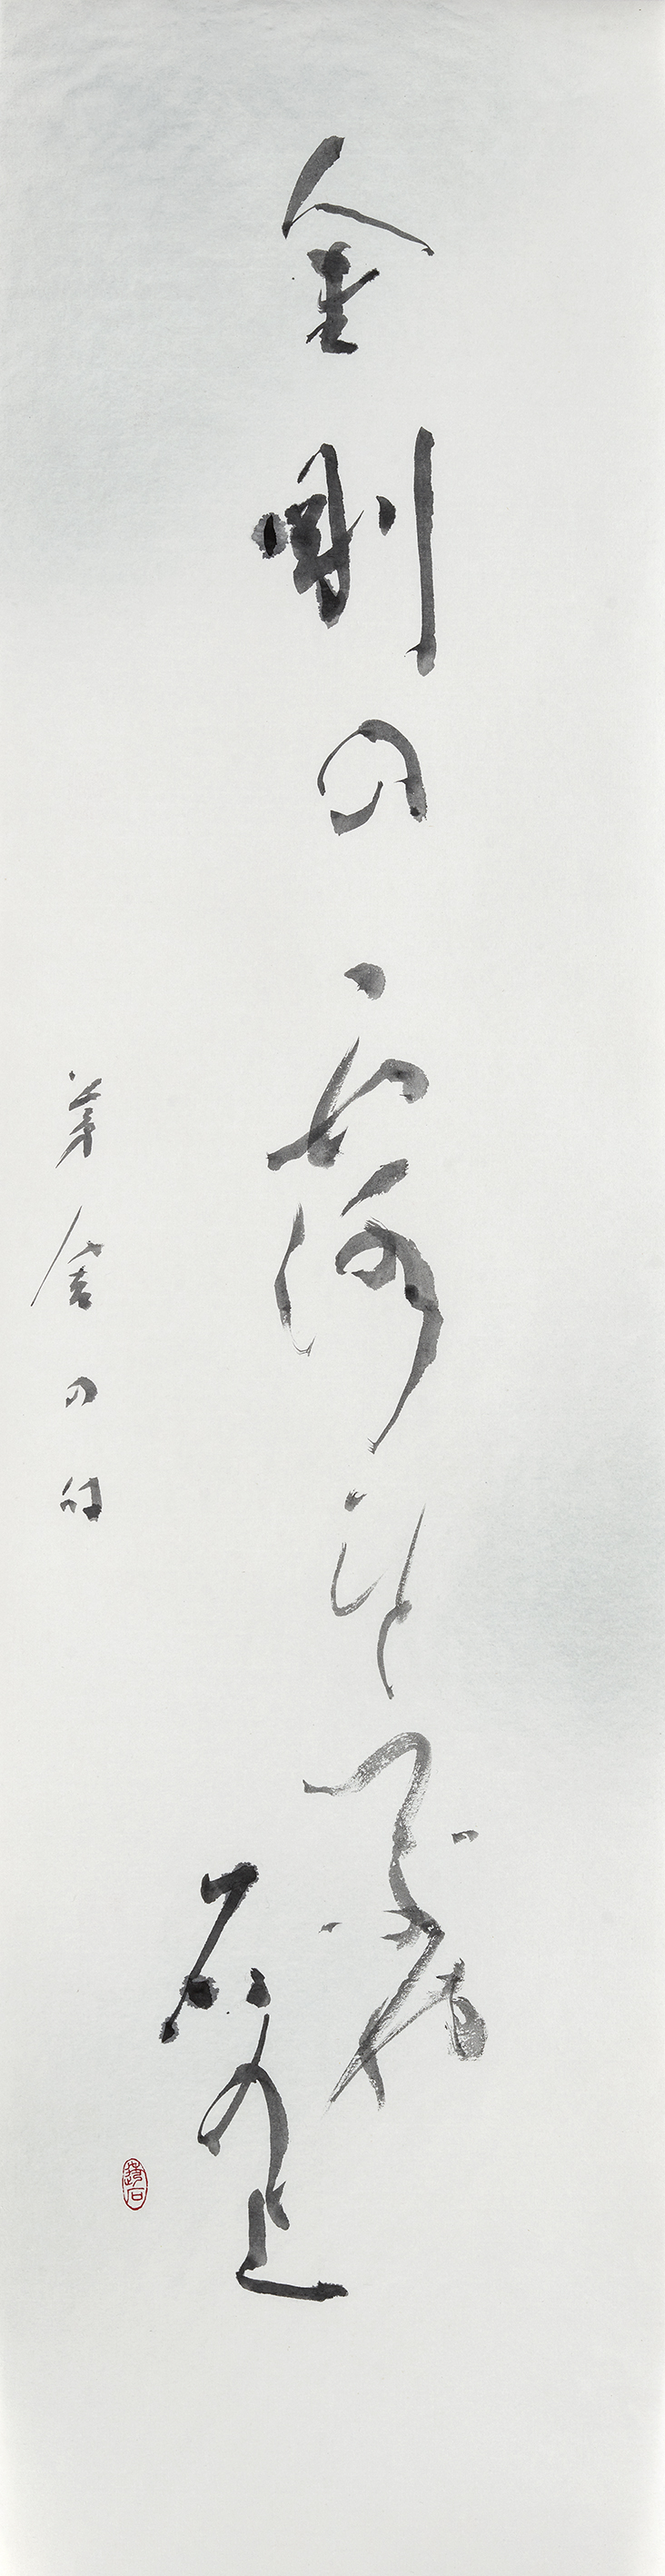 金剛の露ひとつぶや
石の上
茅舎の句